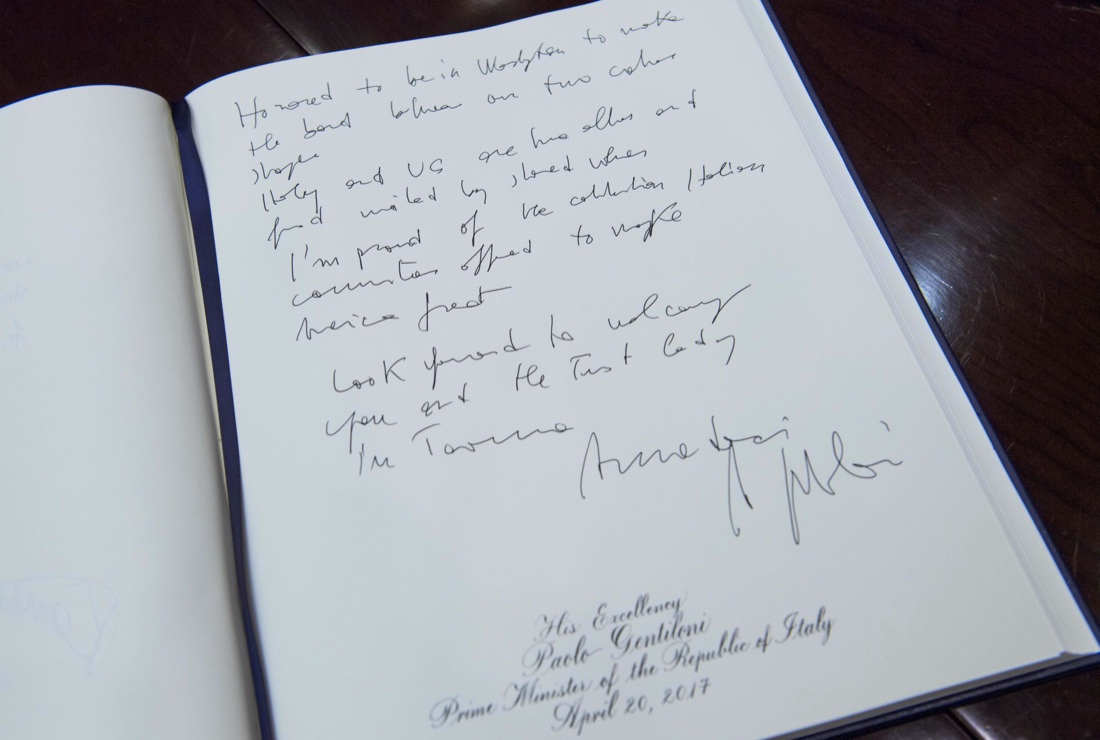 Honored to be in Washington to make
the bond between our two
Italy and US are two allies and
united by shared values
I'm proud of the contribution Italian
communities offered to make
America great
Look forward to welcoming
you and the First Lady
in Taormina
His Excellency
Paolo Gentiloni
Prime Minister of the Republic of Italy
April 20, 2017